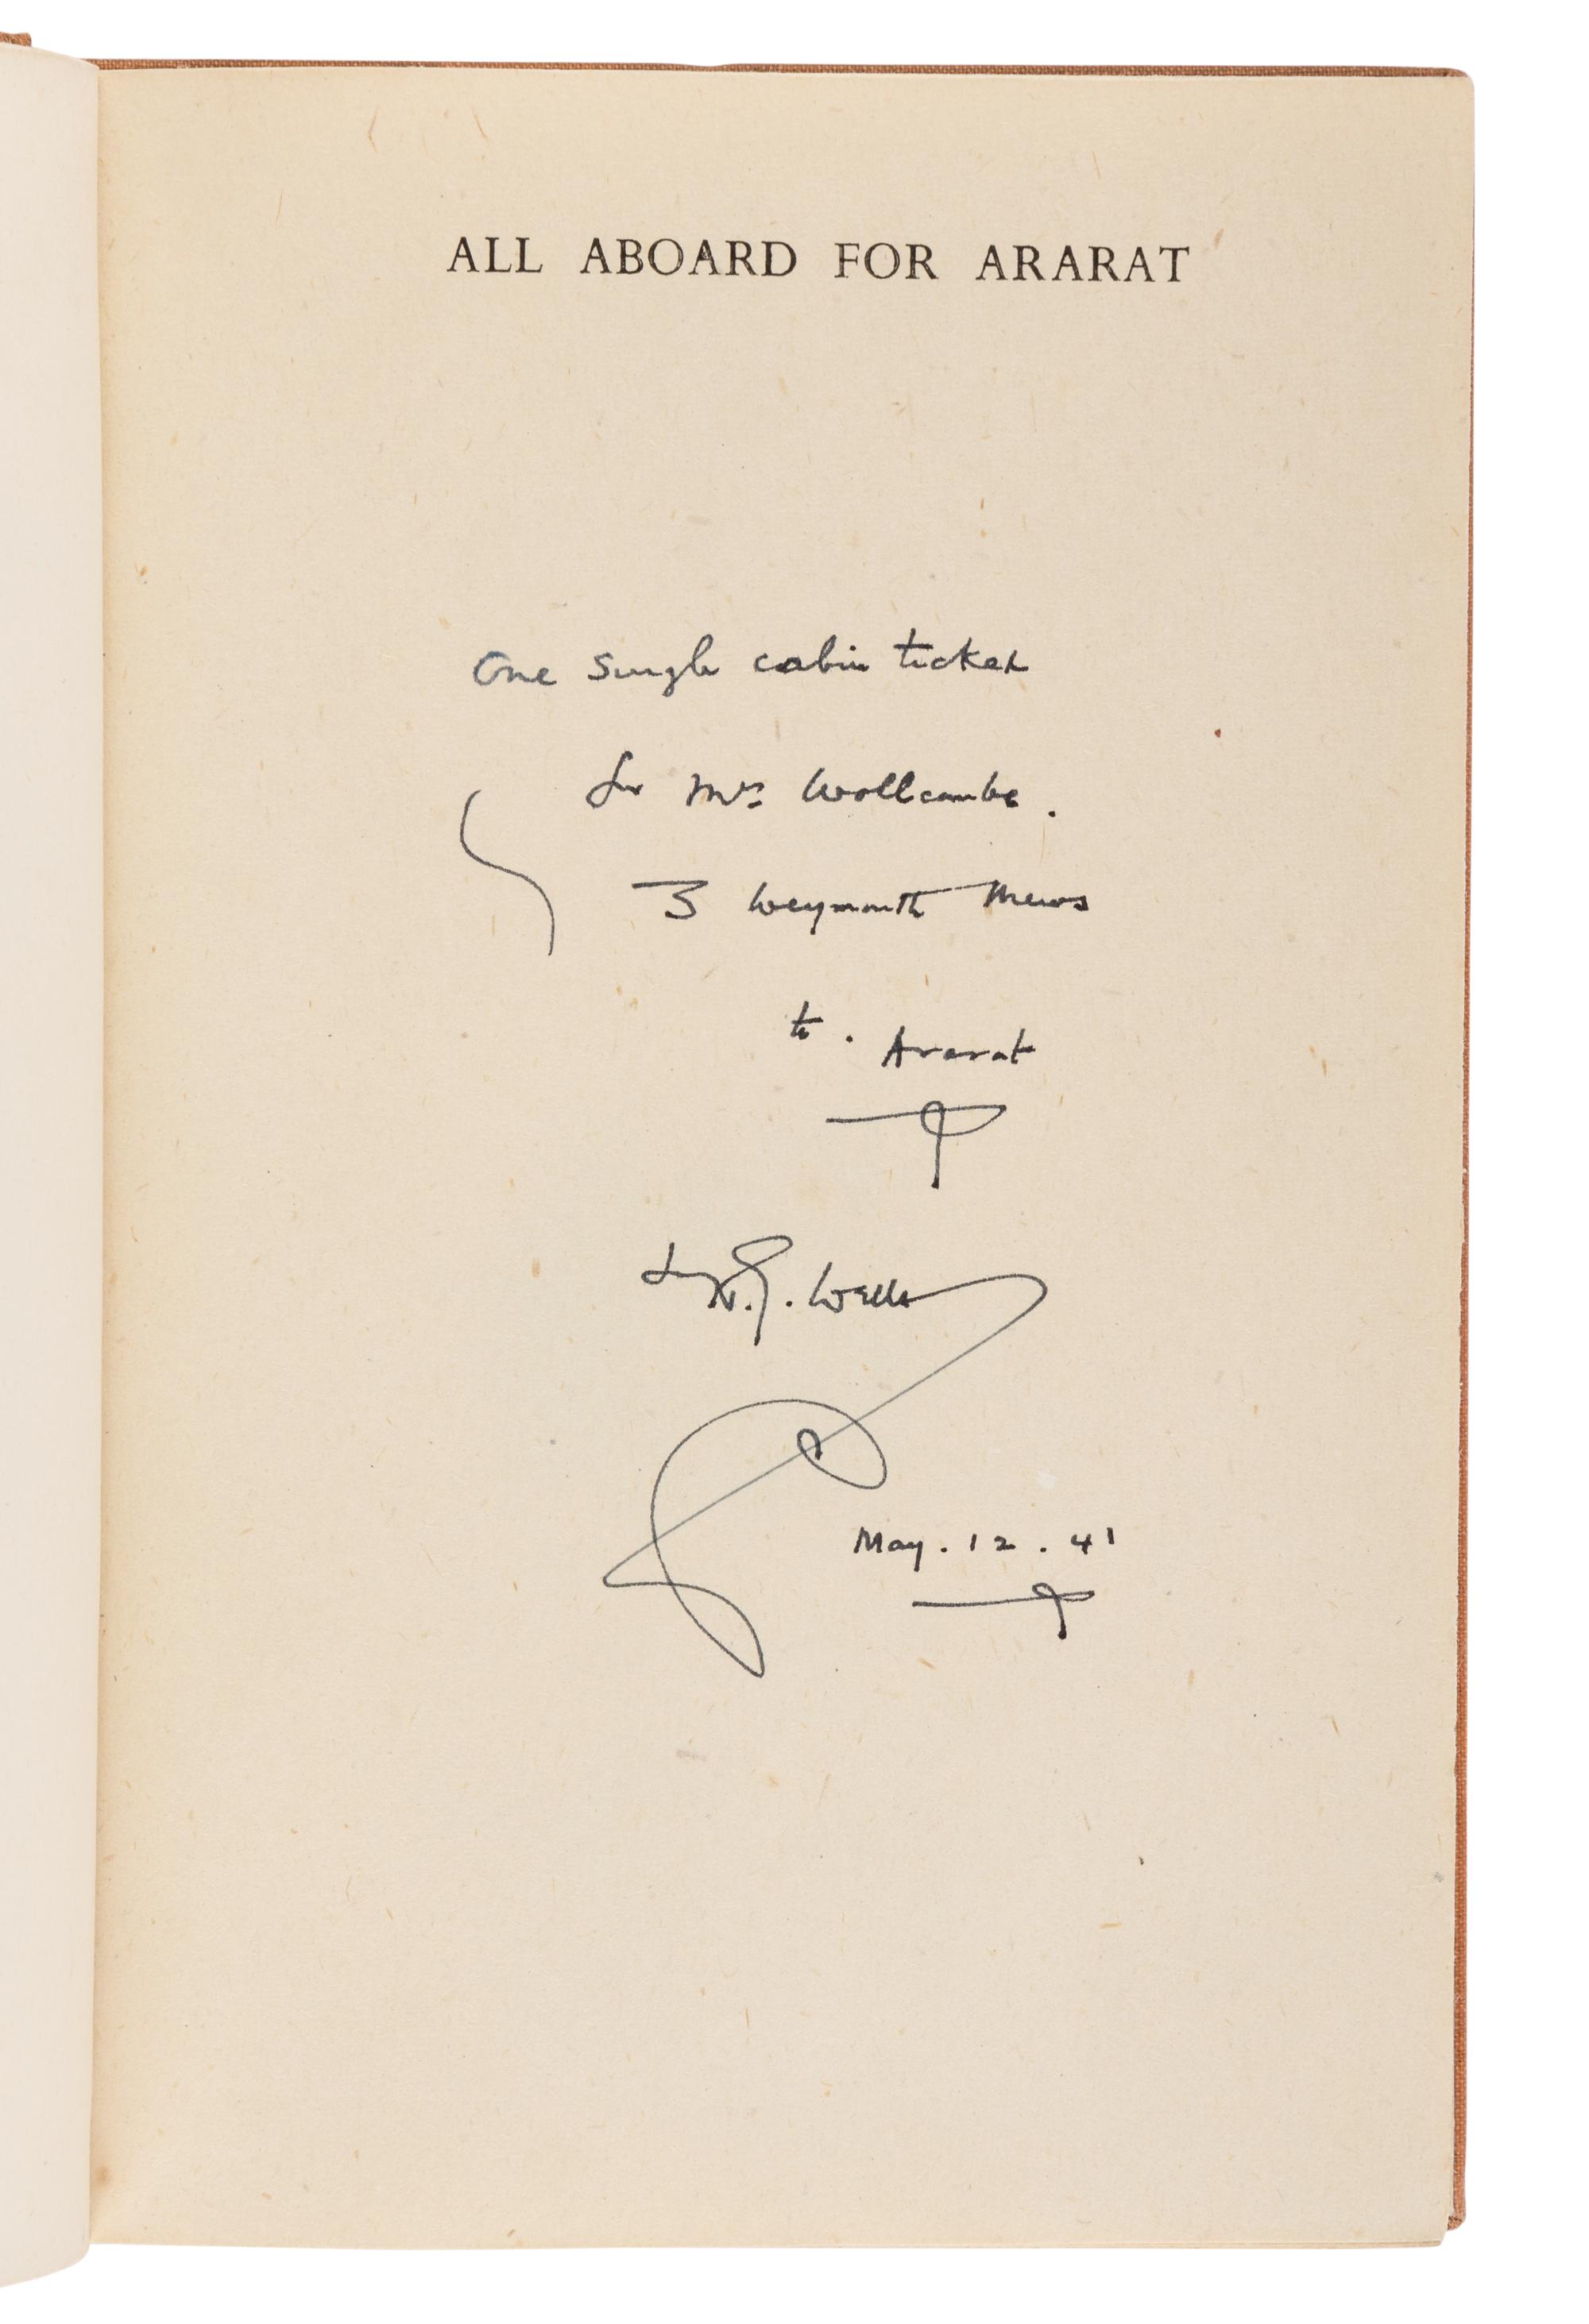 ALL ABOARD FOR ARARAT
One single cabin ticket
for Mrs Wollcombe.
3 Weymouth Mews
to. Ararat
H.G. Wells
May. 12. 41